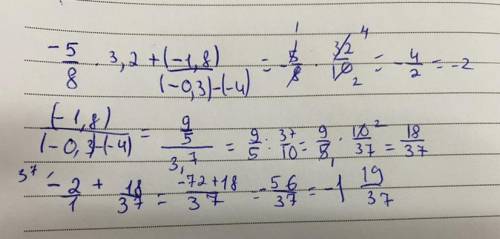 -5/8 · 3,2 + (-1,8)/(-0,3)-(-4) = -5/8 · 32/10 = -4/2 = -2
(-1,8)/(-0,3)-(-4) = 9/5 / 3,7 = 9/5 : 37/10 = 9/5 · 10/37 = 18/37
-2/1 + 18/37 = -72+18/37 = -56/37 = -1 19/37